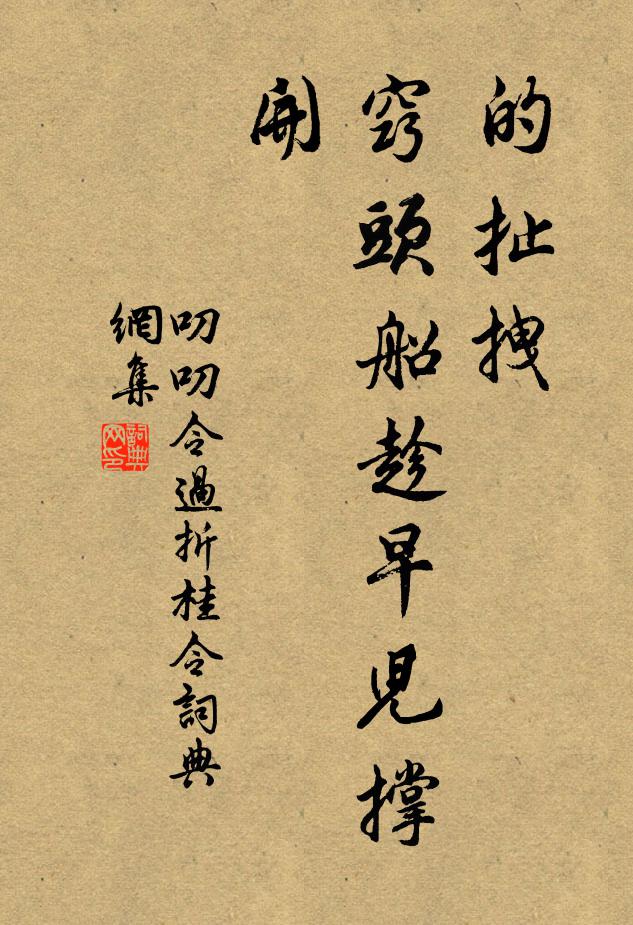 的扯拽
窍頭船趁早兒撑
開
叨叨令過折桂令詞典
網集
詞典
网印